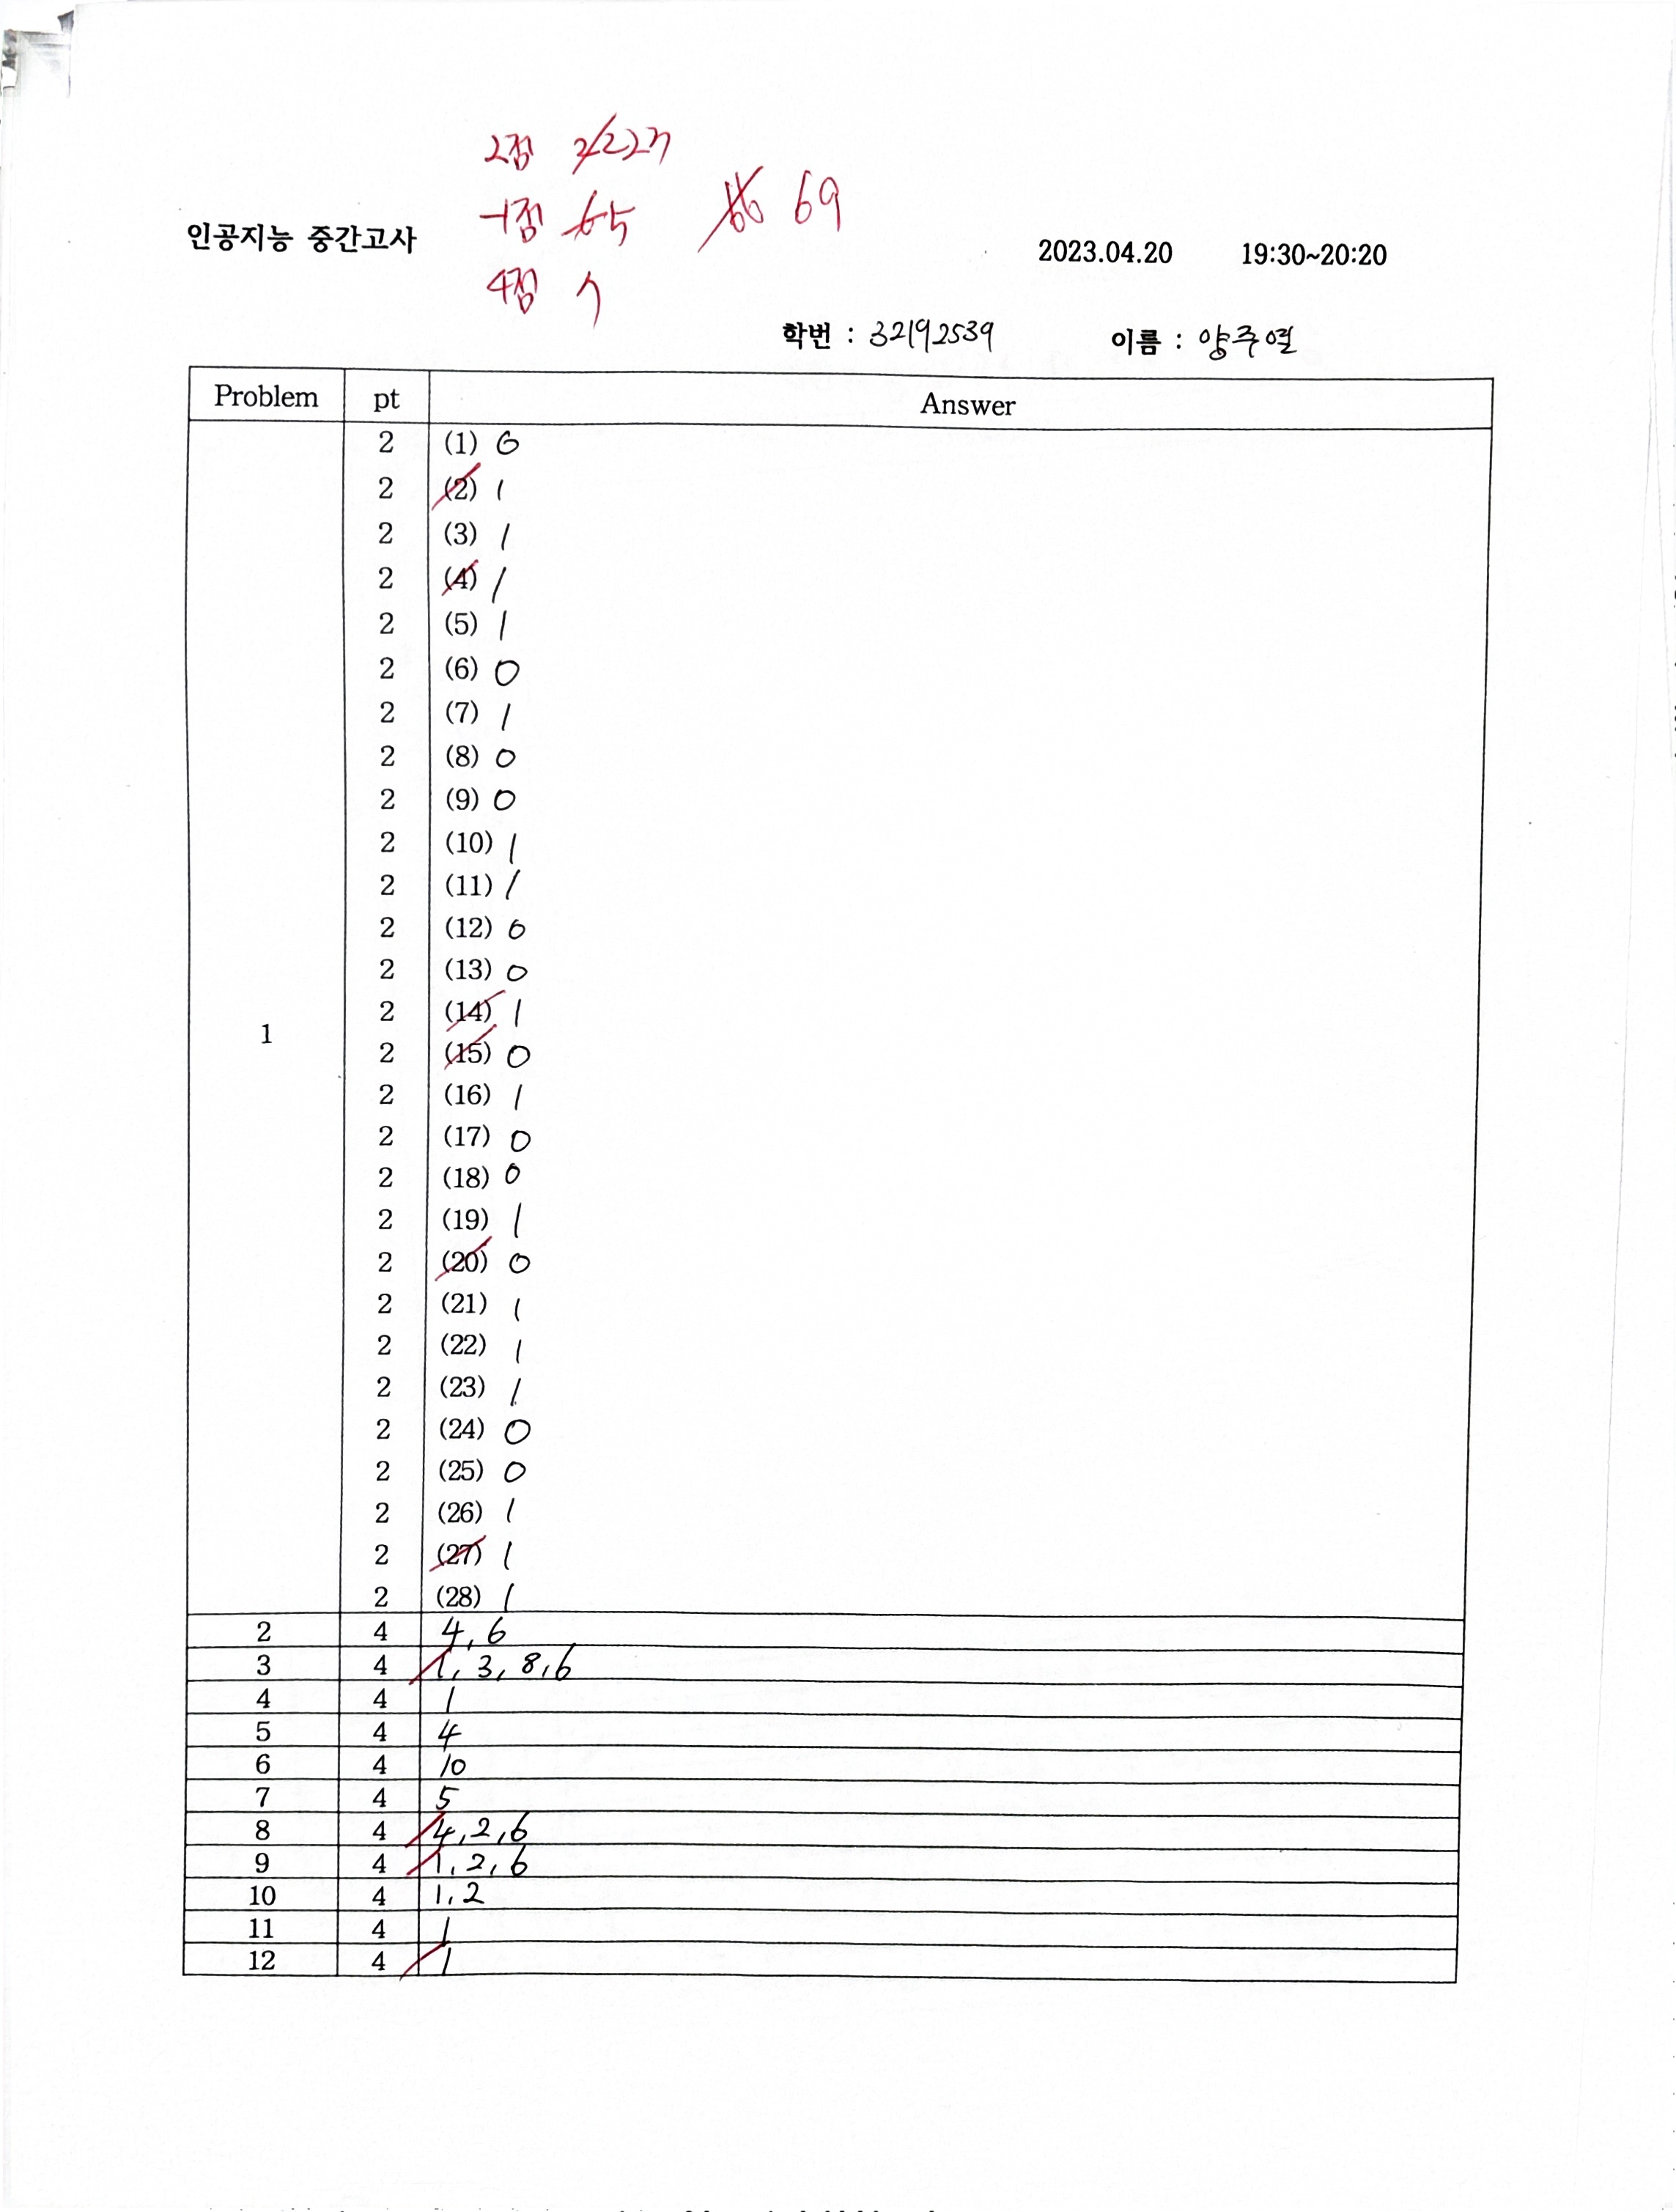 2점 22개
-1점 5 69
인공지능 중간고사
2023.04.20 19:30~20:20
4점 7
학번 : 32192539 이름 : 양주열
Problem pt Answer
1
2 (1) 0
2 (2) 1
2 (3) 1
2 (4) 1
2 (5) 1
2 (6) 0
2 (7) 1
2 (8) 0
2 (9) 0
2 (10) 1
2 (11) 1
2 (12) 0
2 (13) 0
2 (14) 1
2 (15) 0
2 (16) 1
2 (17) 0
2 (18) 0
2 (19) 1
2 (20) 0
2 (21) 1
2 (22) 1
2 (23) 1
2 (24) 0
2 (25) 0
2 (26) 1
2 (27) 1
2 (28) 1
2 4 4, 6
3 4 1, 3, 8, 6
4 4 1
5 4 4
6 4 10
7 4 5
8 4 4, 2, 6
9 4 1, 2, 6
10 4 1, 2
11 4 1
12 4 1